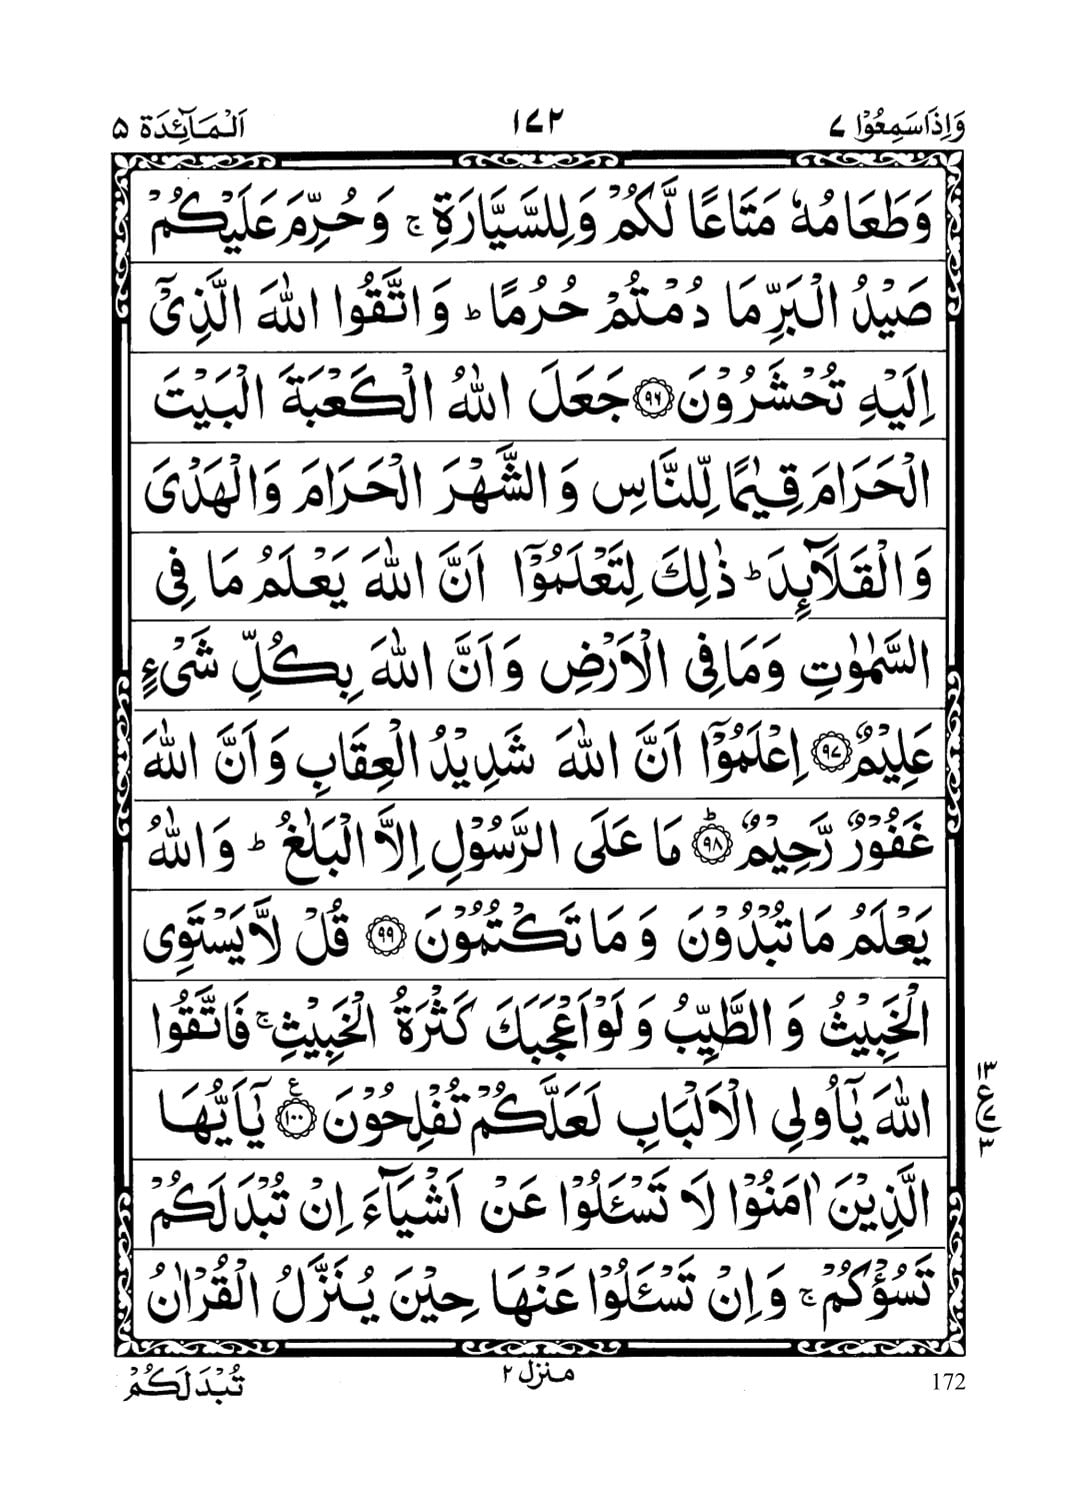 وَاِذَاسَمِعُوْا ٧
١٧٢
اَلْمَآئِدَة ۵
وَطَعَامُهٗ مَتَاعًا لَّكُمْ وَلِلسَّيَّارَةِ ۚ وَحُرِّمَ عَلَيْكُمْ
صَيْدُ الْبَرِّ مَا دُمْتُمْ حُرُمًا ؕ وَاتَّقُوا اللّٰهَ الَّذِىْٓ
اِلَيْهِ تُحْشَرُوْنَ ﴿۹۶﴾ جَعَلَ اللّٰهُ الْكَعْبَةَ الْبَيْتَ
الْحَرَامَ قِيٰمًا لِّلنَّاسِ وَالشَّهْرَ الْحَرَامَ وَالْهَدْىَ
وَالْقَلَآئِدَ ؕ ذٰلِكَ لِتَعْلَمُوْٓا اَنَّ اللّٰهَ يَعْلَمُ مَا فِى
السَّمٰوٰتِ وَمَا فِى الْاَرْضِ وَاَنَّ اللّٰهَ بِكُلِّ شَىْءٍ
عَلِيْمٌ ﴿۹۷﴾ اِعْلَمُوْٓا اَنَّ اللّٰهَ شَدِيْدُ الْعِقَابِ وَاَنَّ اللّٰهَ
غَفُوْرٌ رَّحِيْمٌ ؕ﴿۹۸﴾ مَا عَلَى الرَّسُوْلِ اِلَّا الْبَلٰغُ ؕ وَاللّٰهُ
يَعْلَمُ مَا تُبْدُوْنَ وَمَا تَكْتُمُوْنَ ﴿۹۹﴾ قُلْ لَّا يَسْتَوِى
الْخَبِيْثُ وَالطَّيِّبُ وَلَوْ اَعْجَبَكَ كَثْرَةُ الْخَبِيْثِ ۚ فَاتَّقُوا
اللّٰهَ يٰٓاُولِى الْاَلْبَابِ لَعَلَّكُمْ تُفْلِحُوْنَ ﴿۱۰۰﴾ع يٰٓاَيُّهَا
١٣
ع ٧
٣
الَّذِيْنَ اٰمَنُوْا لَا تَسْـَٔلُوْا عَنْ اَشْيَآءَ اِنْ تُبْدَ لَكُمْ
تَسُؤْكُمْ ۚ وَاِنْ تَسْـَٔلُوْا عَنْهَا حِيْنَ يُنَزَّلُ الْقُرْاٰنُ
تُبْدَلَكُمْ
منزل ٢
172